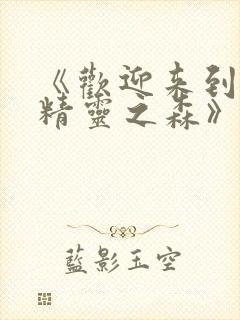 《歡迎来到
精靈之森》
藍影玉空